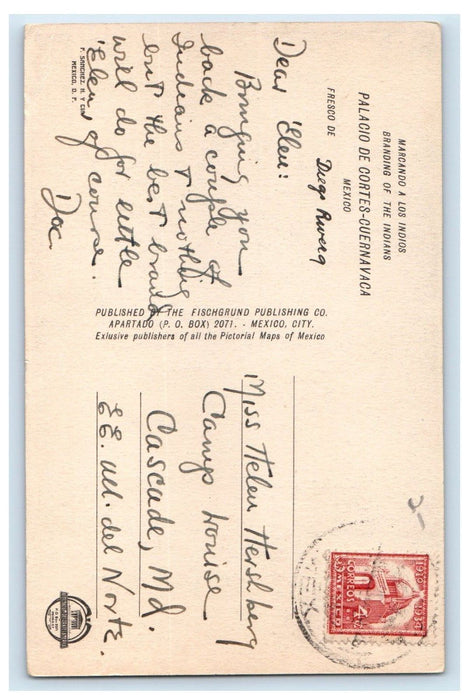 MARCANDO A LOS INDIOS
BRANDING OF THE INDIANS
PALACIO DE CORTES-CUERNAVACA
MEXICO
FRESCO DE Diego Rivera
Dear 'Elen:
Bringing you
back a couple of
Indians & nothing
but the best brand
will do for little
'Elen of course.
Doc.
F. SANCHEZ. H. Y CIA
MEXICO, D. F.
PUBLISHED BY THE FISCHGRUND PUBLISHING CO.
APARTADO (P. O. BOX) 2071. - MEXICO, CITY.
Exlusive publishers of all the Pictorial Maps of Mexico
Miss Helen Hershberg
Camp Louise
Cascade, Md
EE. UU. del Norte.
1934
CORREOS
MEXICO
4